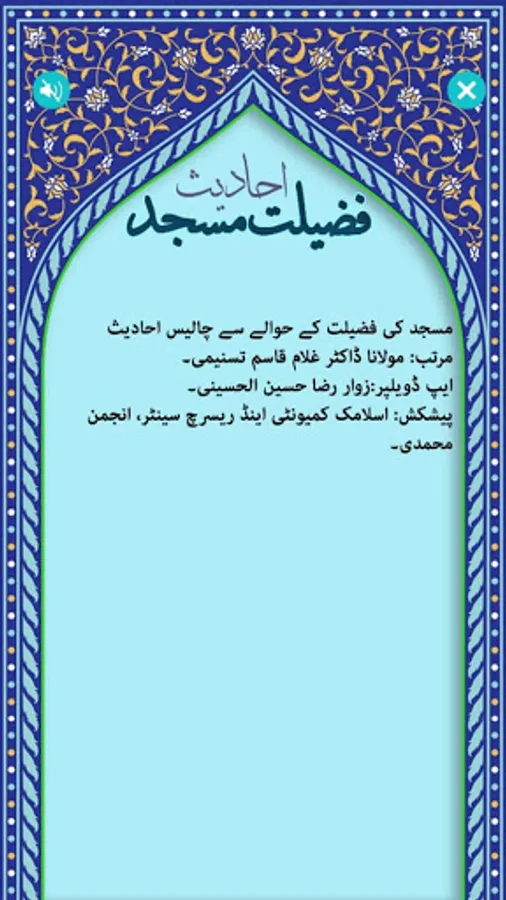 احادیث
فضیلت مسجد
مسجد کی فضیلت کے حوالے سے چالیس احادیث
مرتب: مولانا ڈاکٹر غلام قاسم تسنیمی۔
ایپ ڈویلپر:زوار رضا حسین الحسینی۔
پیشکش: اسلامک کمیونٹی اینڈ ریسرچ سینٹر، انجمن
محمدی۔